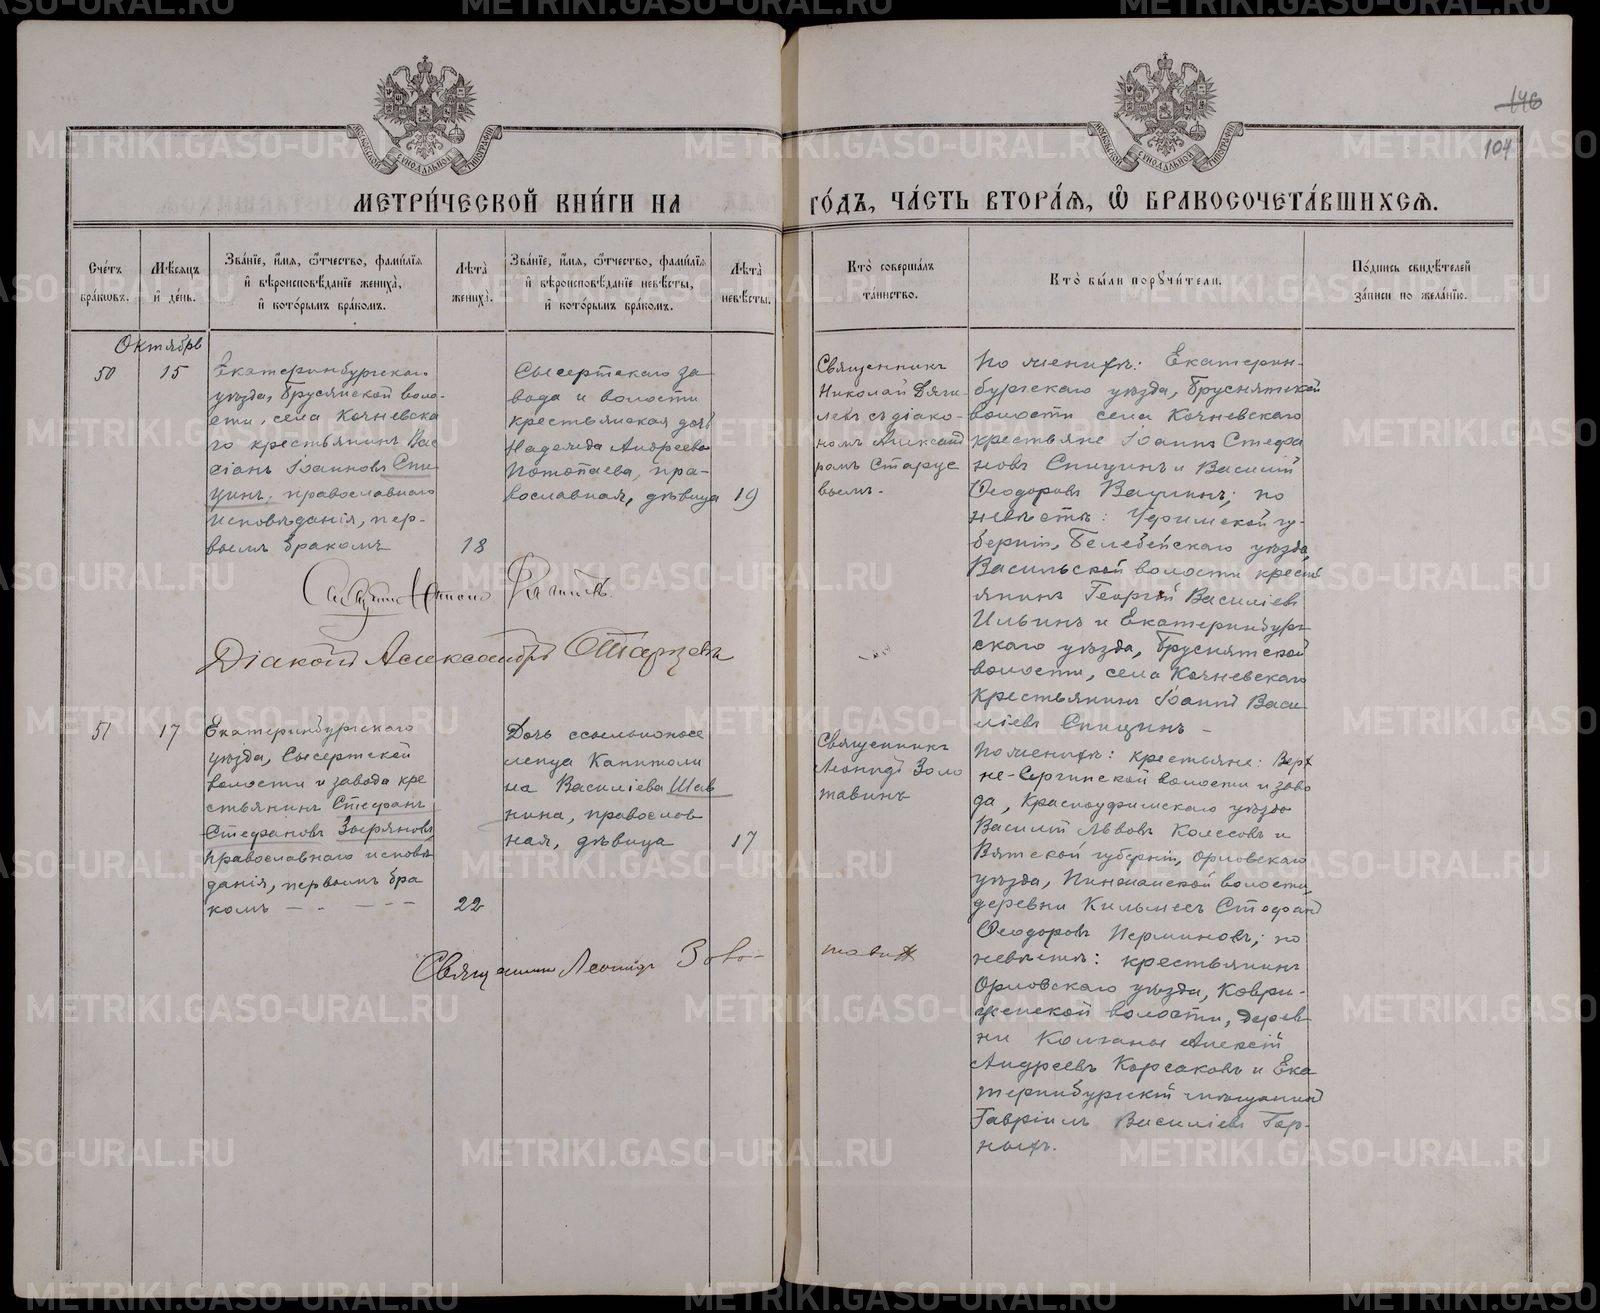 146
104
МОСКОВСКОЙ СѴНОДАЛЬНОЙ ТИПОГРАФІИ
МОСКОВСКОЙ СѴНОДАЛЬНОЙ ТИПОГРАФІИ
МЕТРИ́ЧЕСКОЙ КНИ́ГИ НА ГО́ДЪ, ЧА́СТЬ ВТОРА́Я, Ѡ БРАКОСОЧЕТА́ВШИХСЯ.
Сче́тъ бра́ковъ.
Мѣ́сяцъ и де́нь.
Зва́ніе, и́мя, ѻ́тчество, фами́лія
и вѣроисповѣ́даніе жениха̀,
и кото́рымъ бра́комъ.
Лѣта̀ жениха̀.
Зва́ніе, и́мя, ѻ́тчество, фами́лія
и вѣроисповѣ́даніе невѣ́сты,
и кото́рымъ бра́комъ.
Лѣта̀ невѣ́сты.
Кто̀ соверша́лъ
та́инство.
Кто̀ бы́ли порꙋчи́тели.
По́дпись свидѣ́телей
за́писи по жела́нію.
Октябрь
50
15
Екатеринбургскаго
уѣзда, Брусянской воло-
сти, села Кочневска
го крестьянинъ Вас
сіанъ Іоанновъ Спи
цинъ, православнаго
исповѣданія, пер-
вымъ бракомъ
18
Сысертскаго за
вода и волости
крестьянская дочь
Надежда Андреева
Потопаева, пра-
вославная, дѣвица
19
Священникъ
Николай Дяги
левъ съ діако-
номъ Александ
ромъ Старце
вымъ.
По женихѣ: Екатерин-
бургскаго уѣзда, Бруснятской
волости села Кочневскаго
крестьяне Іоаннъ Стефа
новъ Спицинъ и Василій
Ѳеодоровъ Вацлинъ; по
невѣстѣ: Уфимской гу-
берніи, Белебейскаго уѣзда,
Васильской волости кресть
янинъ Георгій Василіевъ
Ильинъ и Екатеринбург
скаго уѣзда, Бруснятской
волости, села Кочневскаго
крестьянинъ Іоаннъ Васи
ліевъ Спицинъ
Священникъ Николай
Діаконъ Александръ Старцевъ
51
17
Екатеринбургскаго
уѣзда, Сысертской
волости и завода кре
стьянинъ Стефанъ
Стефановъ Зыряновъ,
православнаго исповѣ
данія, первымъ бра
комъ
22
Дочь ссыльнопосе
ленца Капитоли
на Василіева Шав
нина, православ
ная, дѣвица
17
Священникъ
Леонидъ Золо
тавинъ
По женихѣ: крестьяне: Верх
не-Сергинской волости и заво
да, Красноуфимскаго уѣзда
Василій Львовъ Колесовъ и
Вятской губерніи, Орловскаго
уѣзда, Пинжанской волости,
деревни Кильмесъ Стефанъ
Ѳеодоровъ Перминовъ; по
невѣстѣ: крестьянинъ
Орловскаго уѣзда, Коври-
женской волости, дерев
ни Колганы Алексій
Андреевъ Корсаковъ и Ека
теринбургскій мѣщанинъ
Гавріилъ Василіевъ Гор-
ныхъ.
Священникъ Леонидъ Золо-
тавинъ